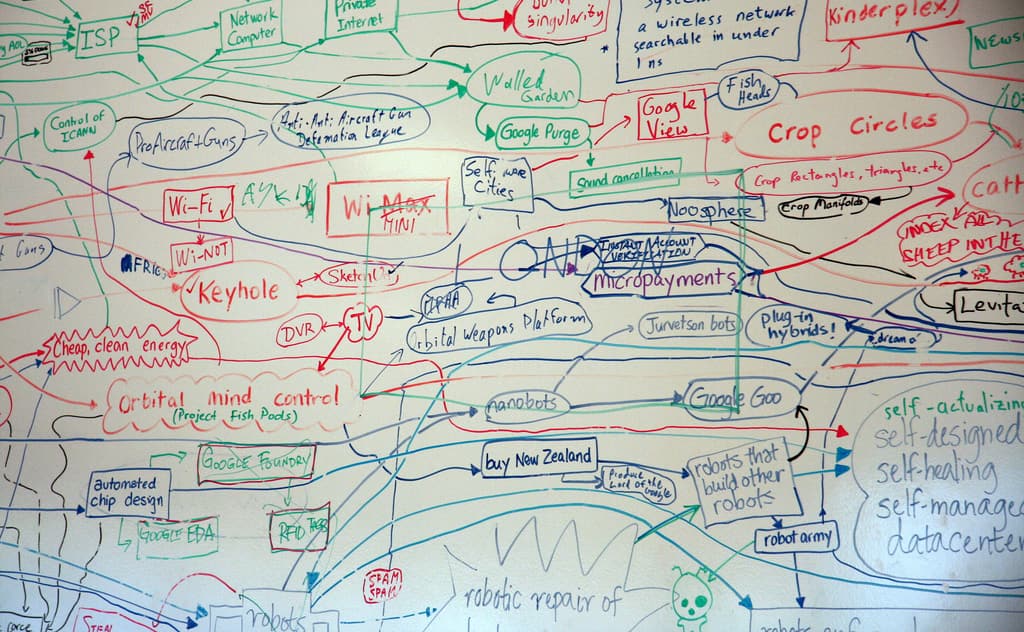 ISP
Network
Computer
Private
Internet
singularity
a wireless network
searchable in under
1 ns
Kinderplex)
Walled
Garden
Fish
Heads
Google
View
Control of
ICANN
ProAircraftGuns
Anti-Anti Aircraft Gun
Defamation League
Google Purge
Crop Circles
Self aware
Cities
Sound cancellation
Crop Rectangles, triangles, etc
Wi-Fi
Wi Max
MINI
Noosphere
Crop Manifolds
Guns
Wi-NOT
INSTANT ACCOUNT
VERIFICATION
INDEX ALL
SHEEP IN THE
Keyhole
Sketchup
micropayments
DVR
TV
Orbital Weapons Platform
Jurvetson bots
Plug-in
hybrids!
Levita
Cheap, clean energy
Orbital mind control
(Project Fish Pools)
nanobots
Google Goo
self-actualizing
self-designed
self-healing
self-managed
datacenter
GOOGLE FOUNDRY
buy New Zealand
Produce
Lord of the
Google
robots that
build other
robots
automated
chip design
GOOGLE EDA
RFID TAGS
robot army
SPAM
SPAM
robotic repair of
robots